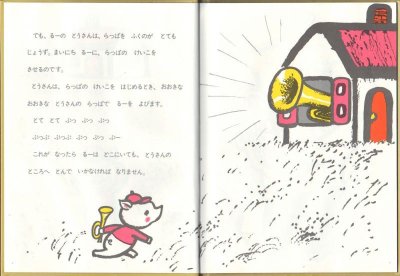 でも、るーの とうさんは、らっぱを ふくのが とても
じょうず。まいにち るーに、らっぱの けいこを
させるのです。
とうさんは、らっぱの けいこを はじめるとき、おおきな
おおきな とうさんの らっぱで るーを よびます。
とて とて ぷっ ぷっ ぷっ
ぷっぷ ぷっぷ ぷっ ぷっ ぷー
これが なったら るーは どこにいても、とうさんの
ところへ とんで いかなければ なりません。